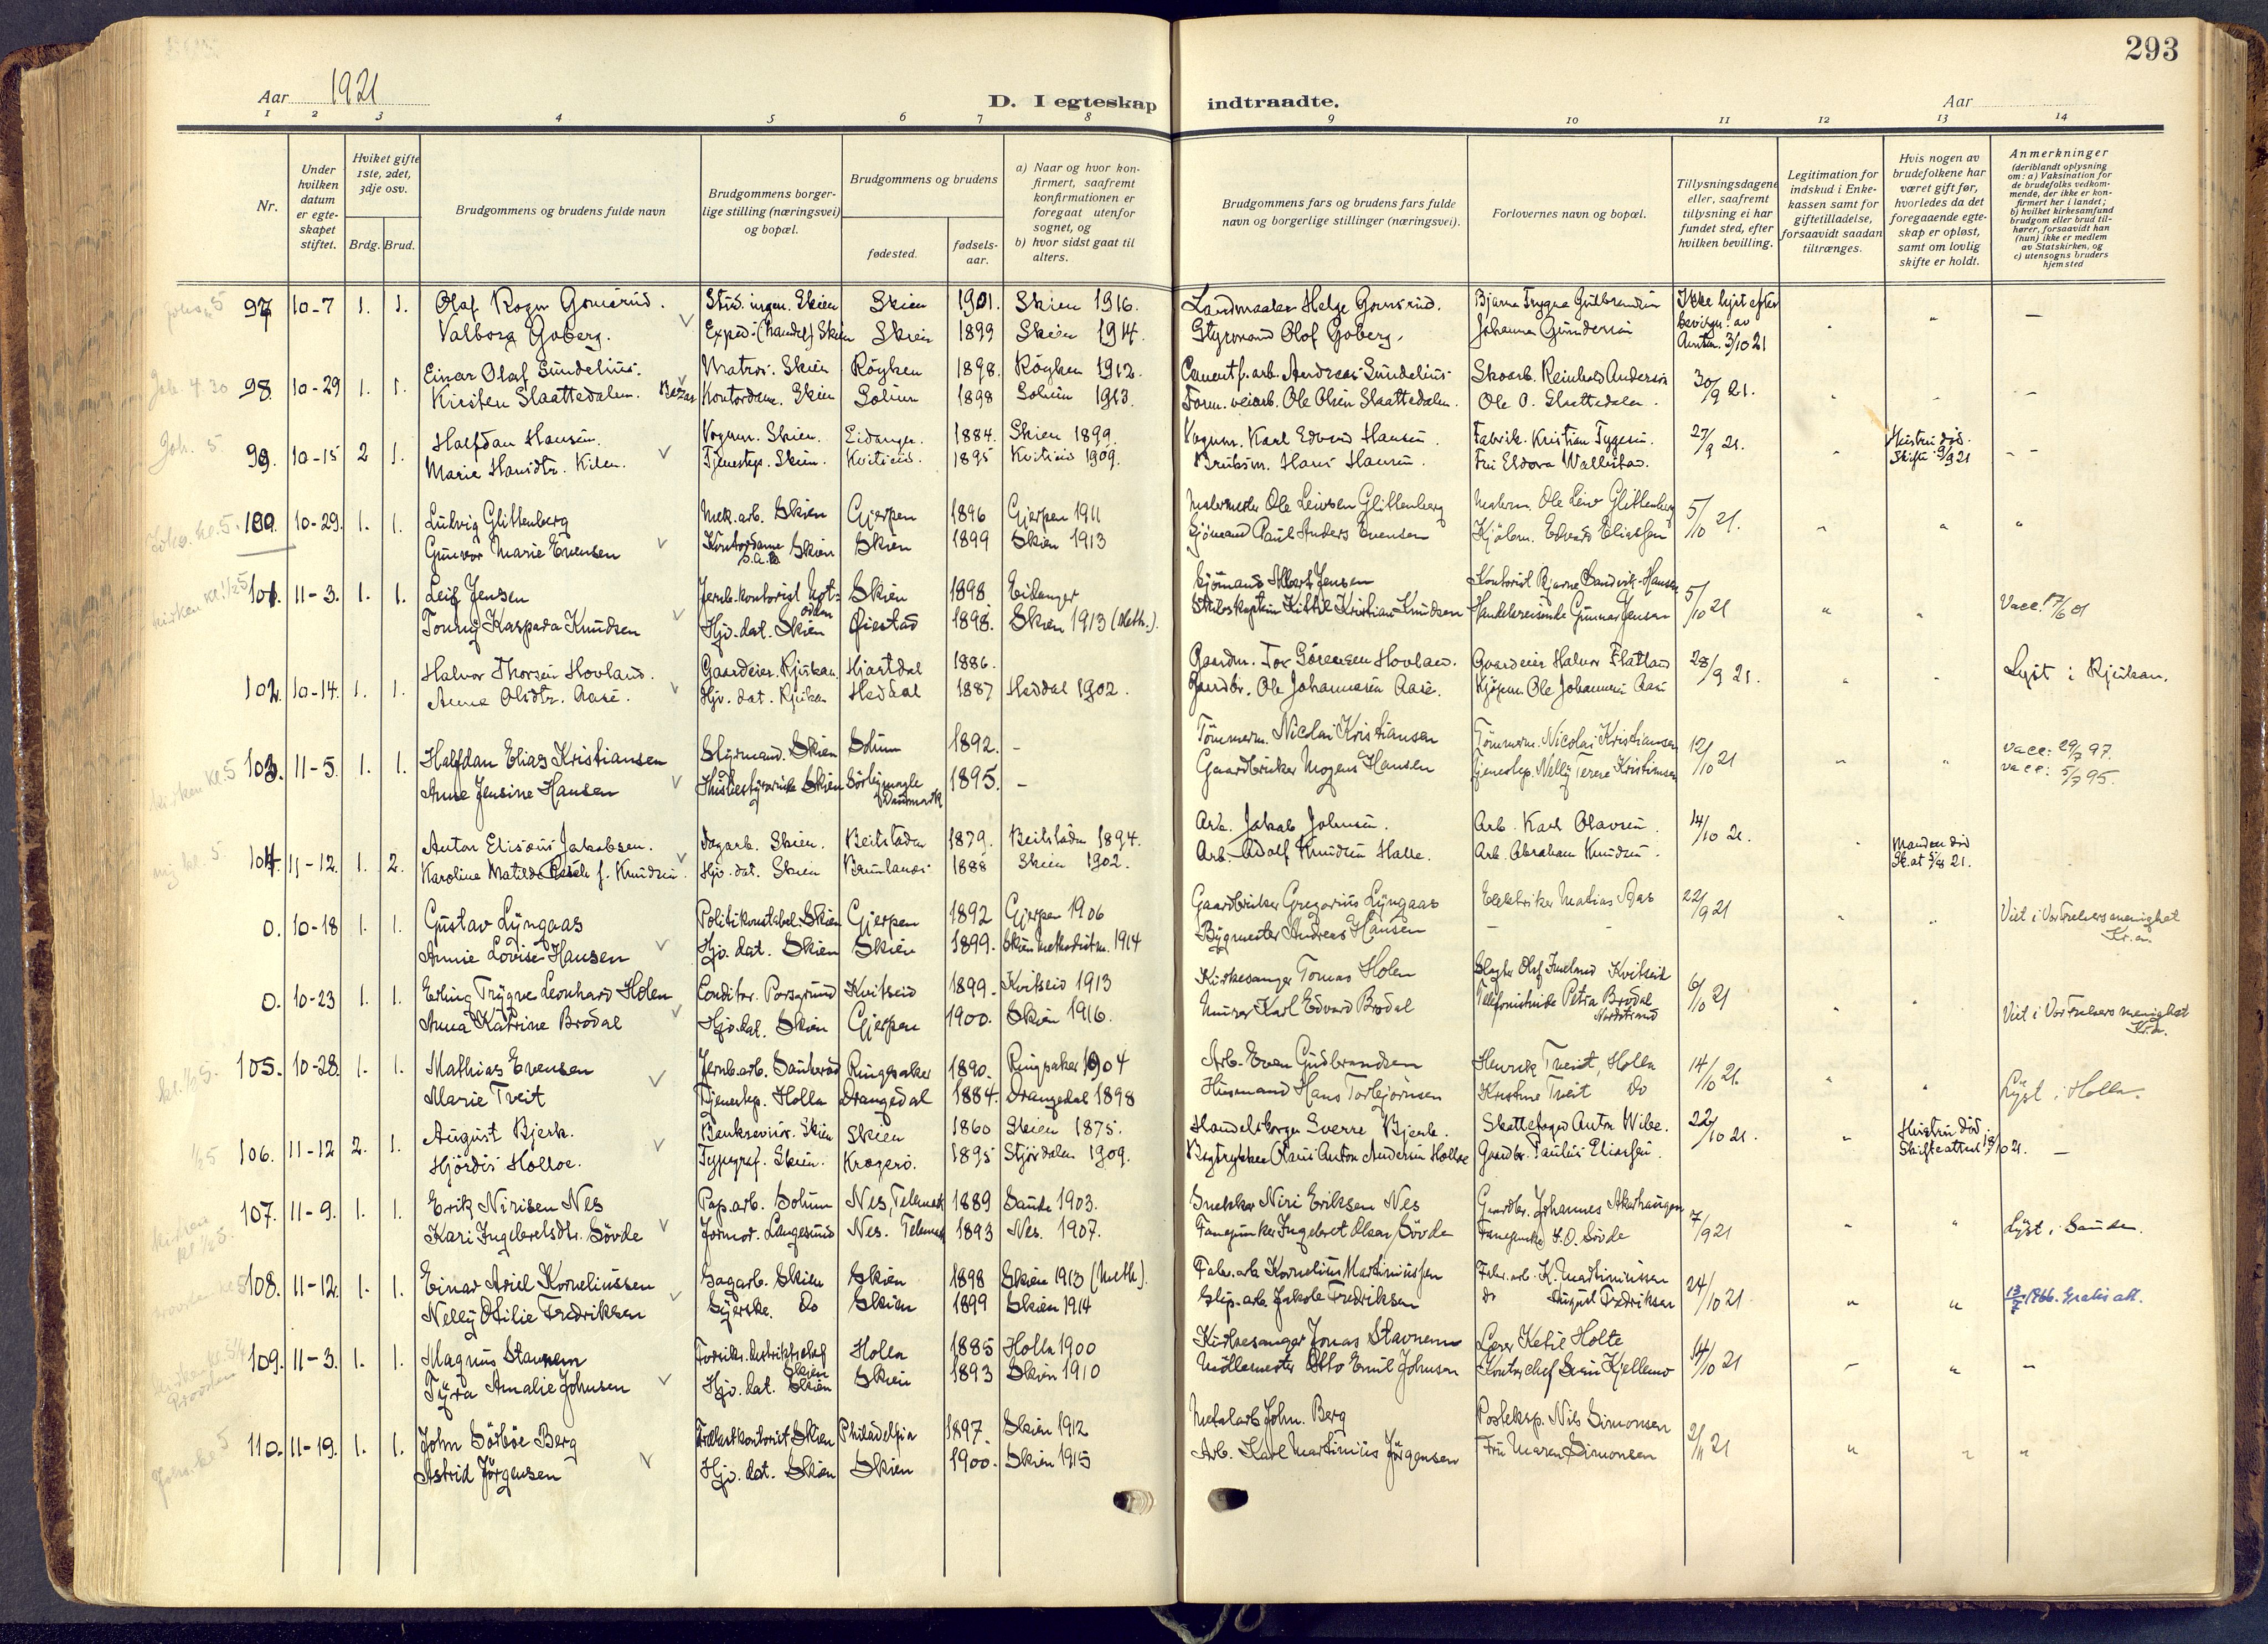 293
Aar 1921
D. I egteskap indtraadte.
Aar
1 2 3 4 5 6 7 8 9 10 11 12 13 14
Nr.
Under hvilken datum er egte-skapet stiftet.
Hviket gifte 1ste, 2det, 3dje osv.
Brdg. Brud.
Brudgommens og brudens fulde navn
Brudgommens borger-lige stilling (næringsvei) og bopæl.
Brudgommens og brudens
fødested.
fødsels-aar.
a) Naar og hvor kon-firmert, saafremt konfirmationen er foregaat utenfor sognet, og
b) hvor sidst gaat til alters.
Brudgommens fars og brudens fars fulde navn og borgerlige stillinger (næringsvei).
Forlovernes navn og bopæl.
Tillysningsdagene eller, saafremt tillysning ei har fundet sted, efter hvilken bevilling.
Legitimation for indskud i Enke-kassen samt for giftetilladelse, forsaavidt saadan tiltrænges.
Hvis nogen av brudefolkene har været gift før, hvorledes da det foregaaende egte-skap er opløst, samt om lovlig skifte er holdt.
Anmerkninger
(deriblandt oplysning om: a) Vaksination for de brudefolks vedkom-mende, der ikke er kon-firmert her i landet; b) hvilket kirkesamfund brudgom eller brud til-hører, forsaavidt han (hun) ikke er medlem av Statskirken, og c) utensogns bruders hjemsted
97 10-7 1. 1. Olaf Rogn Gomsrud. Stud. ingen. Skien Skien 1901. Skien 1916. Landmaaler Helge Gomsrud. Bjarne Trygve Gulbrandsen Ikke lyst efter
Valborg Goberg. Exped. (handel) Skien Skien 1899 Skien 1914. Styrmand Olaf Goberg. Johanna Gundersen 3/10 21
98. 10-29 1. 1. Einar Olaf Sundelius. Matros. Skien Røyken 1898. Røyken 1912. Cementf. arb. Andreas Sundelius. Skoarb. Reinhold Anderson 30/9 21.
Kirsten Slaattedalen. Kontordame. Skien Solum 1898 Solum 1913. Form. veiarb. Ole Olsen Slaattedalen. Ole O. Slaattedalen.
99. 10-15 2 1. Halfdan Hansen. Vognm. Skien. Eidanger. 1884. Skien 1899. Vognm. Karl Edvard Hansen. Fabrik. Kristian Tygesen. 27/9 21. Hustru død.
Marie Hansdtr. Kilen. Tjenestep. Skien. Kviteseid. 1895 Kviteseid 1909. Hans Hansen. Skifte 9/9 21
100. 10-29. 1. 1. Ludvig Glittenberg Mek. arb. Skien Gjerpen 1896 Gjerpen 1911 Malermester Ole Leivsen Glittenberg Malerm. Ole Leiv Glittenberg 5/10 21.
Gunvor Marie Evensen Kontordame Skien Skien 1899 Skien 1913 Sjømand Paul Anders Evensen Kjølem. Edvard Eliassen
101. 11-3. 1. 1. Leif Jensen Jernb. kontorist Notodden Skien 1898 Eidanger Sjømand Albert Jensen Kontorist Bjarne Sandvik-Hansen 5/10 21
Tonny Kaspara Knudsen Hjv. dat. Skien Øiestad 1898. Skien 1913 (Meth.). Skibskaptein Kittil Kristian Knudsen Handelsreisende Gunnar Jensen Vacc. 17/6 01
102. 10-14. 1. 1. Halvor Thorsen Hovland. Gaardeier. Rjukan. Hjartdal 1886. Gaardm. Tor Sørensen Hovland. Gaardeier Halvor Flatland 28/9 21. Lyst i Rjukan.
Anne Olsdtr. Aase. Hjv. dat. Rjukan Heddal 1887 Heddal 1902. Gaardbr. Ole Johannesen Aase. Kjøpm. Ole Johannesen Aase
103. 11-5. 1. 1. Halfdan Elias Kristiansen Styrmand. Skien Solum 1892. – Tømmerm. Nicolai Kristiansen Tømmerm. Nicolai Kristiansen 12/10 21 vacc: 29/7 97.
Anne Jensine Hansen Skien Danmark 1895. – Gaardbruker Mogens Hansen Tjenestep. Nelly Terese Kristiansen vacc: 5/7 95.
104. 11-12. 1. 2. Anton Elisæus Jakobsen. Dagarb. Skien. Beitstaden 1879. Beitstaden 1894. Arb. Jakob Johnsen. Arb. Karl Olavsen. 14/10 21. Manden død
Karoline Matilde f. Knudsen. Hjv. dat. Skien Brunlanes 1888 Skien 1902. Arb. Adolf Knudsen Halle. Arb. Abraham Knudsen. Sk. at 5/8 21.
0. 10-18 1. 1. Gustav Lyngaas Politikonstabel Skien Gjerpen 1892 Gjerpen 1906 Gaardbruker Gregorius Lyngaas Elektriker Matias Aas 22/9 21 Viet i Vor Frelsers menighet Kr.a.
Annie Lovise Hansen Hjv. dat. Skien Skien 1899. Skien Methodistm. 1914 Bygmester Andreas Hansen – –
0. 10-23 1. 1. Erling Trygve Leonhard Holen Conditor. Porsgrund Kvitseid 1899. Kvitseid 1913 Kirkesanger Tomas Holen Kvitseid 6/10 21
Anna Katrine Brodal Hjv. dat. Skien Gjerpen 1900. Skien 1916. Murer Karl Edvard Brodal Telefonistinde Petra Brodal Nordstrand Viet i Vor Frelsers menighet Kr.a.
105. 10-28. 1. 1. Mathias Evensen Jernb. arb. Sauherad Ringsaker 1890. Ringsaker 1904 Arb. Even Gudbrandsen Henrik Tveit, Holla 14/10 21.
Marie Tveit Tjenestep. Holla Drangedal 1884. Drangedal 1898 Husmand Hans Torbjørnsen Kristine Tveit Do Lyst i Holla.
106. 11-12 2. 1. August Bjerk. Bankrevisor. Skien Skien 1860 Skien 1875. Sverre Bjerk. Skattefoged Anton Wibe. 22/10 21. Hustru død.
Hjørdis Holloe. Typograf. Skien. Kragerø. 1895 Stjørdalen 1909. Bogtrykker Olaus Anton Andersen Holloe Gaardbr. Paulus Eliassen. Skifteattest 18/10 21. –
107. 11-9. 1. 1. Erik Nirisen Nes Pap. arb. Solum Nes, Telemark 1889 Saude 1903. Snekker Niri Eriksen Nes Gaardbr. Johannes Akerhaugen 7/9 21
Kari Ingebretsdtr. Søvde Jormor. Langesund Nes. Telemark 1893 Nes. 1907. Fanejunker Ingebret Olsen Søvde Fanejunker I.O. Søvde Lyst i Saude.
108. 11-12. 1. 1. Einar Ariel Korneliussen Sagarb. Skien Skien 1898 Skien 1913 (Meth.) Fabr. arb Kornelius Martiniussen Fabr. arb. K. Martiniussen 24/10 21
Nelly Otilie Fredriksen Syerske. Do Skien 1899 Skien 1914 Slip. arb. Jakob Fredriksen Do August Fredriksen Gratis att.
109. 11-3. 1. 1. Magnus Stavnem Skien Holla 1885 Holla 1900 Kirkesanger Jonas Stavnem Lærer Ketil Holte 14/10 21
Tyra Amalie Johnsen Hjv. dat. Skien Skien 1893 Skien 1910 Møllemester Otto Emil Johnsen Kontorchef Svein Kjellemo
110. 11-19. 1. 1. John Sörböe Berg Trælastkontorist Skien Philadelphia 1897. Skien 1912 Metalarb John. Berg Posteksp. Nils Simonsen 2/11 21
Astrid Jørgensen Hjv. dat. Skien Skien 1900. Skien 1915 Arb. Karl Martinius Jørgensen Fru Maren Simonsen